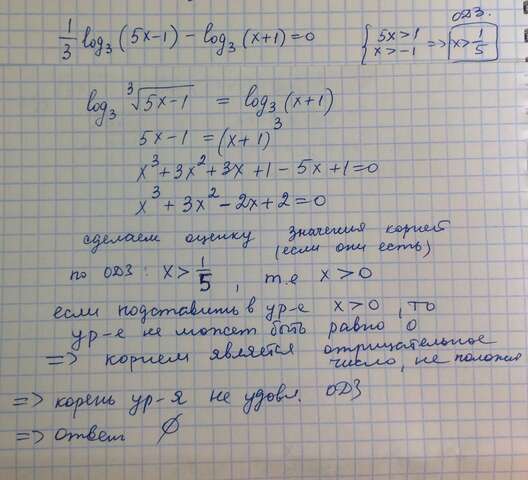 ОДЗ.
1/3 log₃(5x-1) - log₃(x+1)=0 { 5x>1 x>-1 => x>1/5
log₃ ∛(5x-1) = log₃(x+1)
5x-1 = (x+1)³
x³+3x²+3x+1-5x+1=0
x³+3x²-2x+2=0
сделаем оценку значения корней
(если они есть)
по ОДЗ: x>1/5, т.е x>0
если подставить в ур-е x>0, то
ур-е не может быть равно 0
=> корнем является отрицательное
число, не полож
=> корень ур-я не удовл. ОДЗ
=> ответ ∅